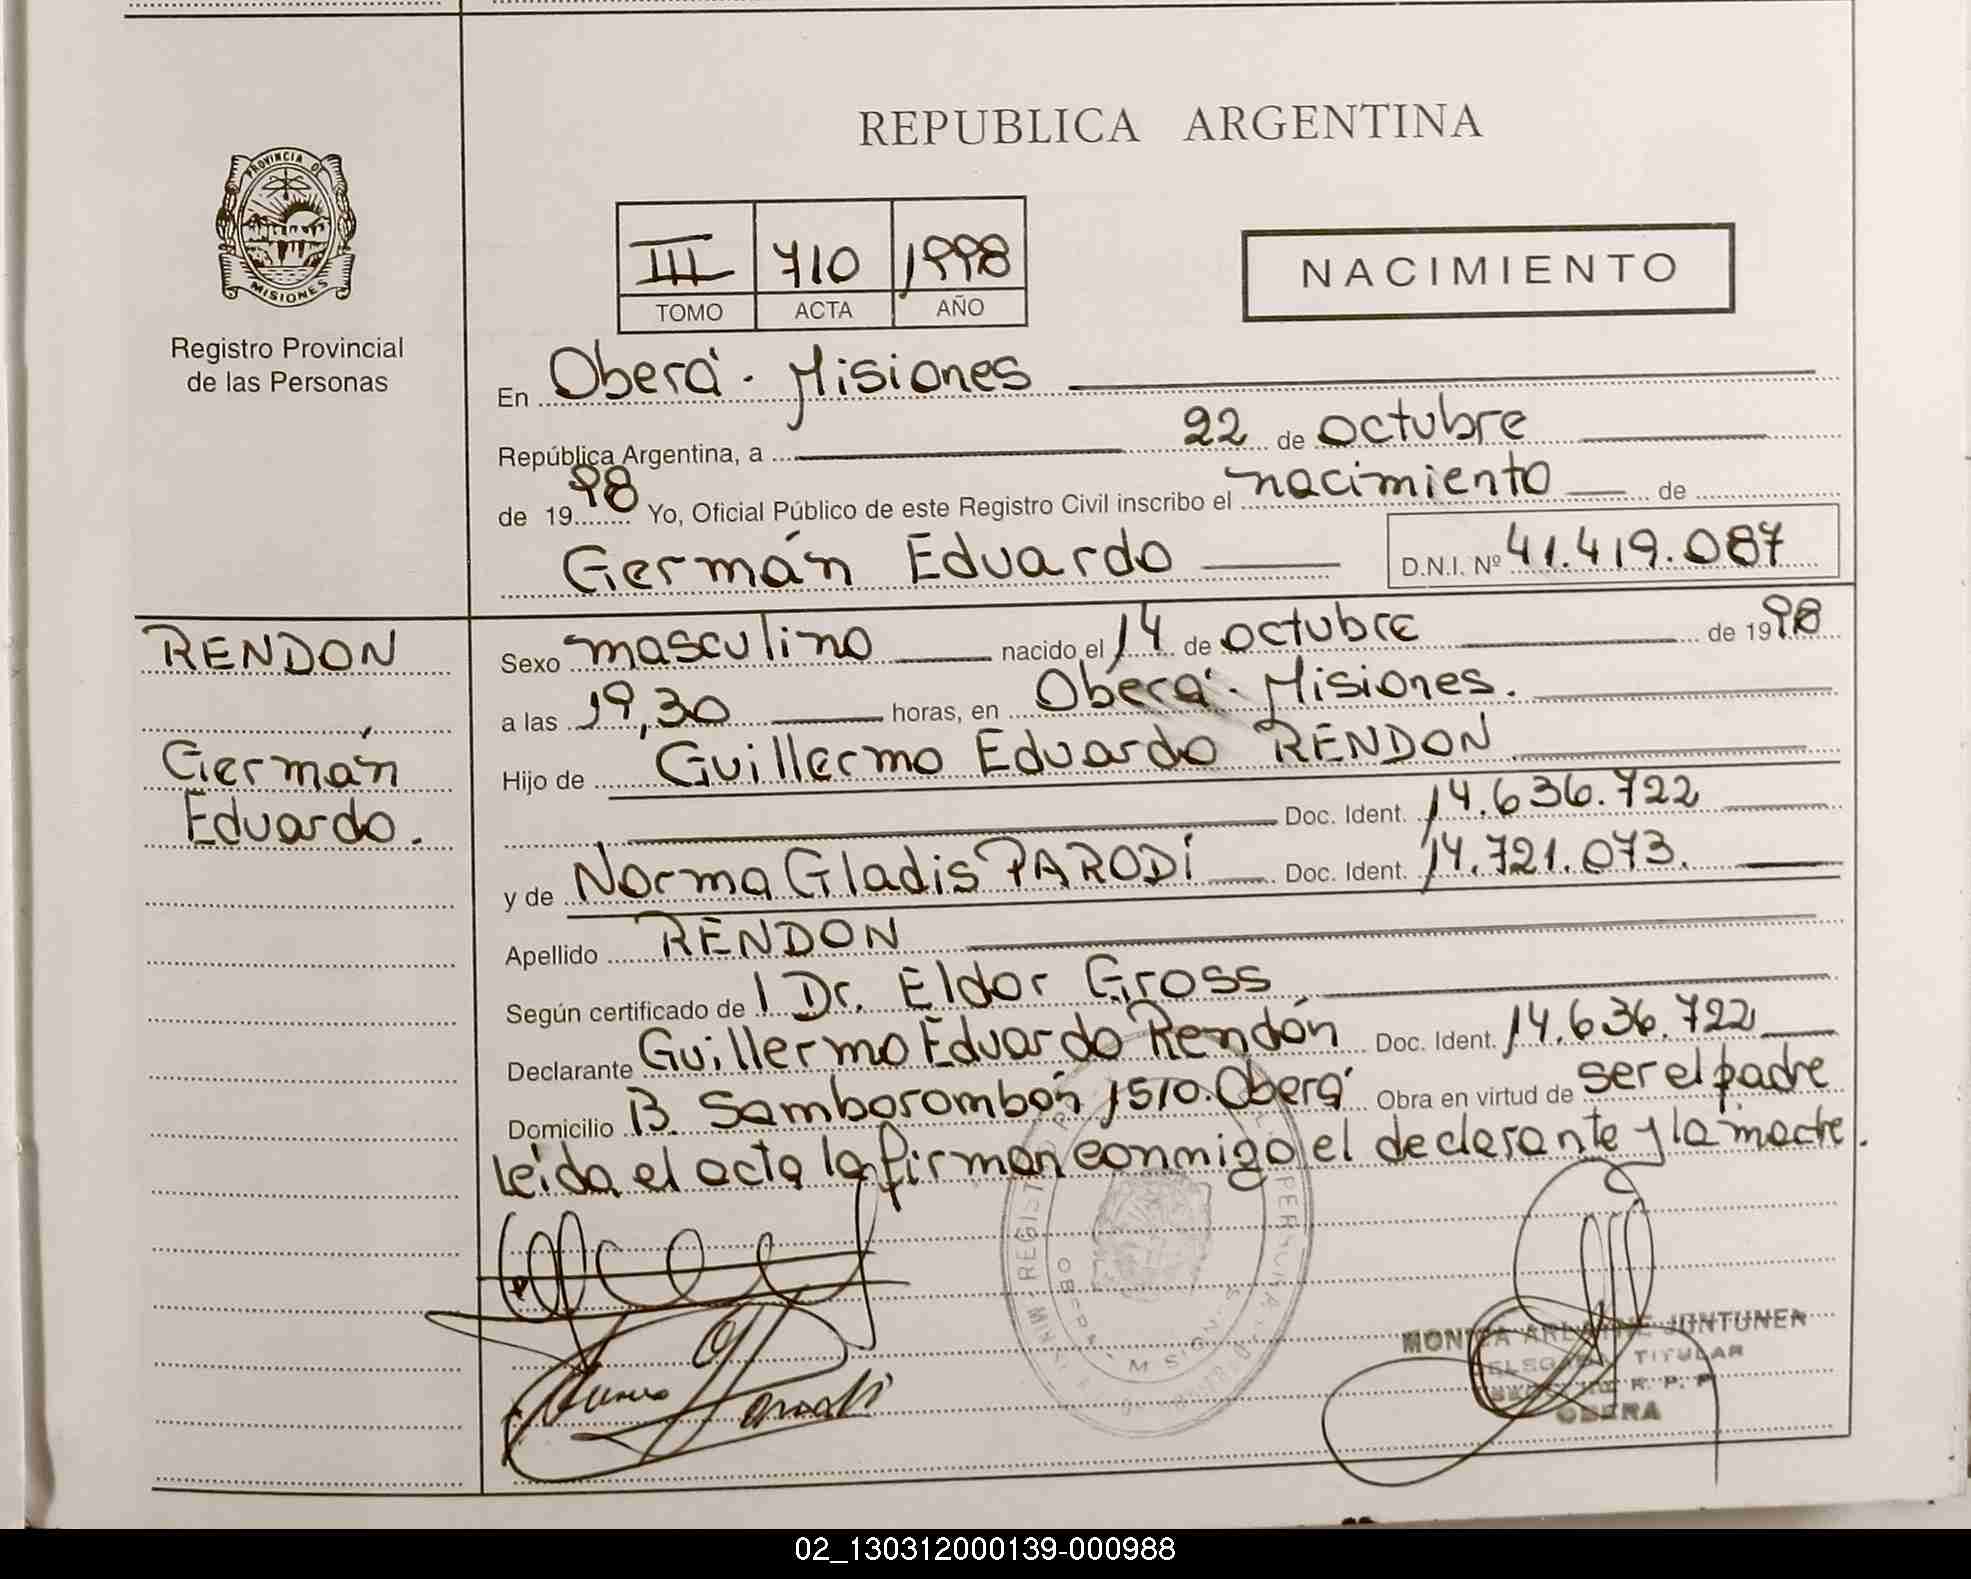 REPUBLICA ARGENTINA
PROVINCIA DE
MISIONES
Registro Provincial
de las Personas
III 710 1998
TOMO ACTA AÑO
NACIMIENTO
En Oberá - Misiones
República Argentina, a 22 de octubre
de 1998 Yo, Oficial Público de este Registro Civil inscribo el nacimiento de
Germán Eduardo D.N.I. Nº 41.419.087
RENDON
Germán
Eduardo.
Sexo masculino nacido el 14 de octubre de 1998
a las 19,30 horas, en Oberá - Misiones.
Hijo de Guillermo Eduardo RENDON
Doc. Ident. 14.636.722
y de Norma Gladis PARODI Doc. Ident. 14.721.073.
Apellido RENDON
Según certificado de l Dr. Eldor Gross
Declarante Guillermo Eduardo Rendón Doc. Ident. 14.636.722
Domicilio B. Samborombón 1510. Oberá Obra en virtud de ser el padre
Leída el acta la firman conmigo el declarante y la madre.
TITULAR
R. P. P
OBERA
02_130312000139-000988